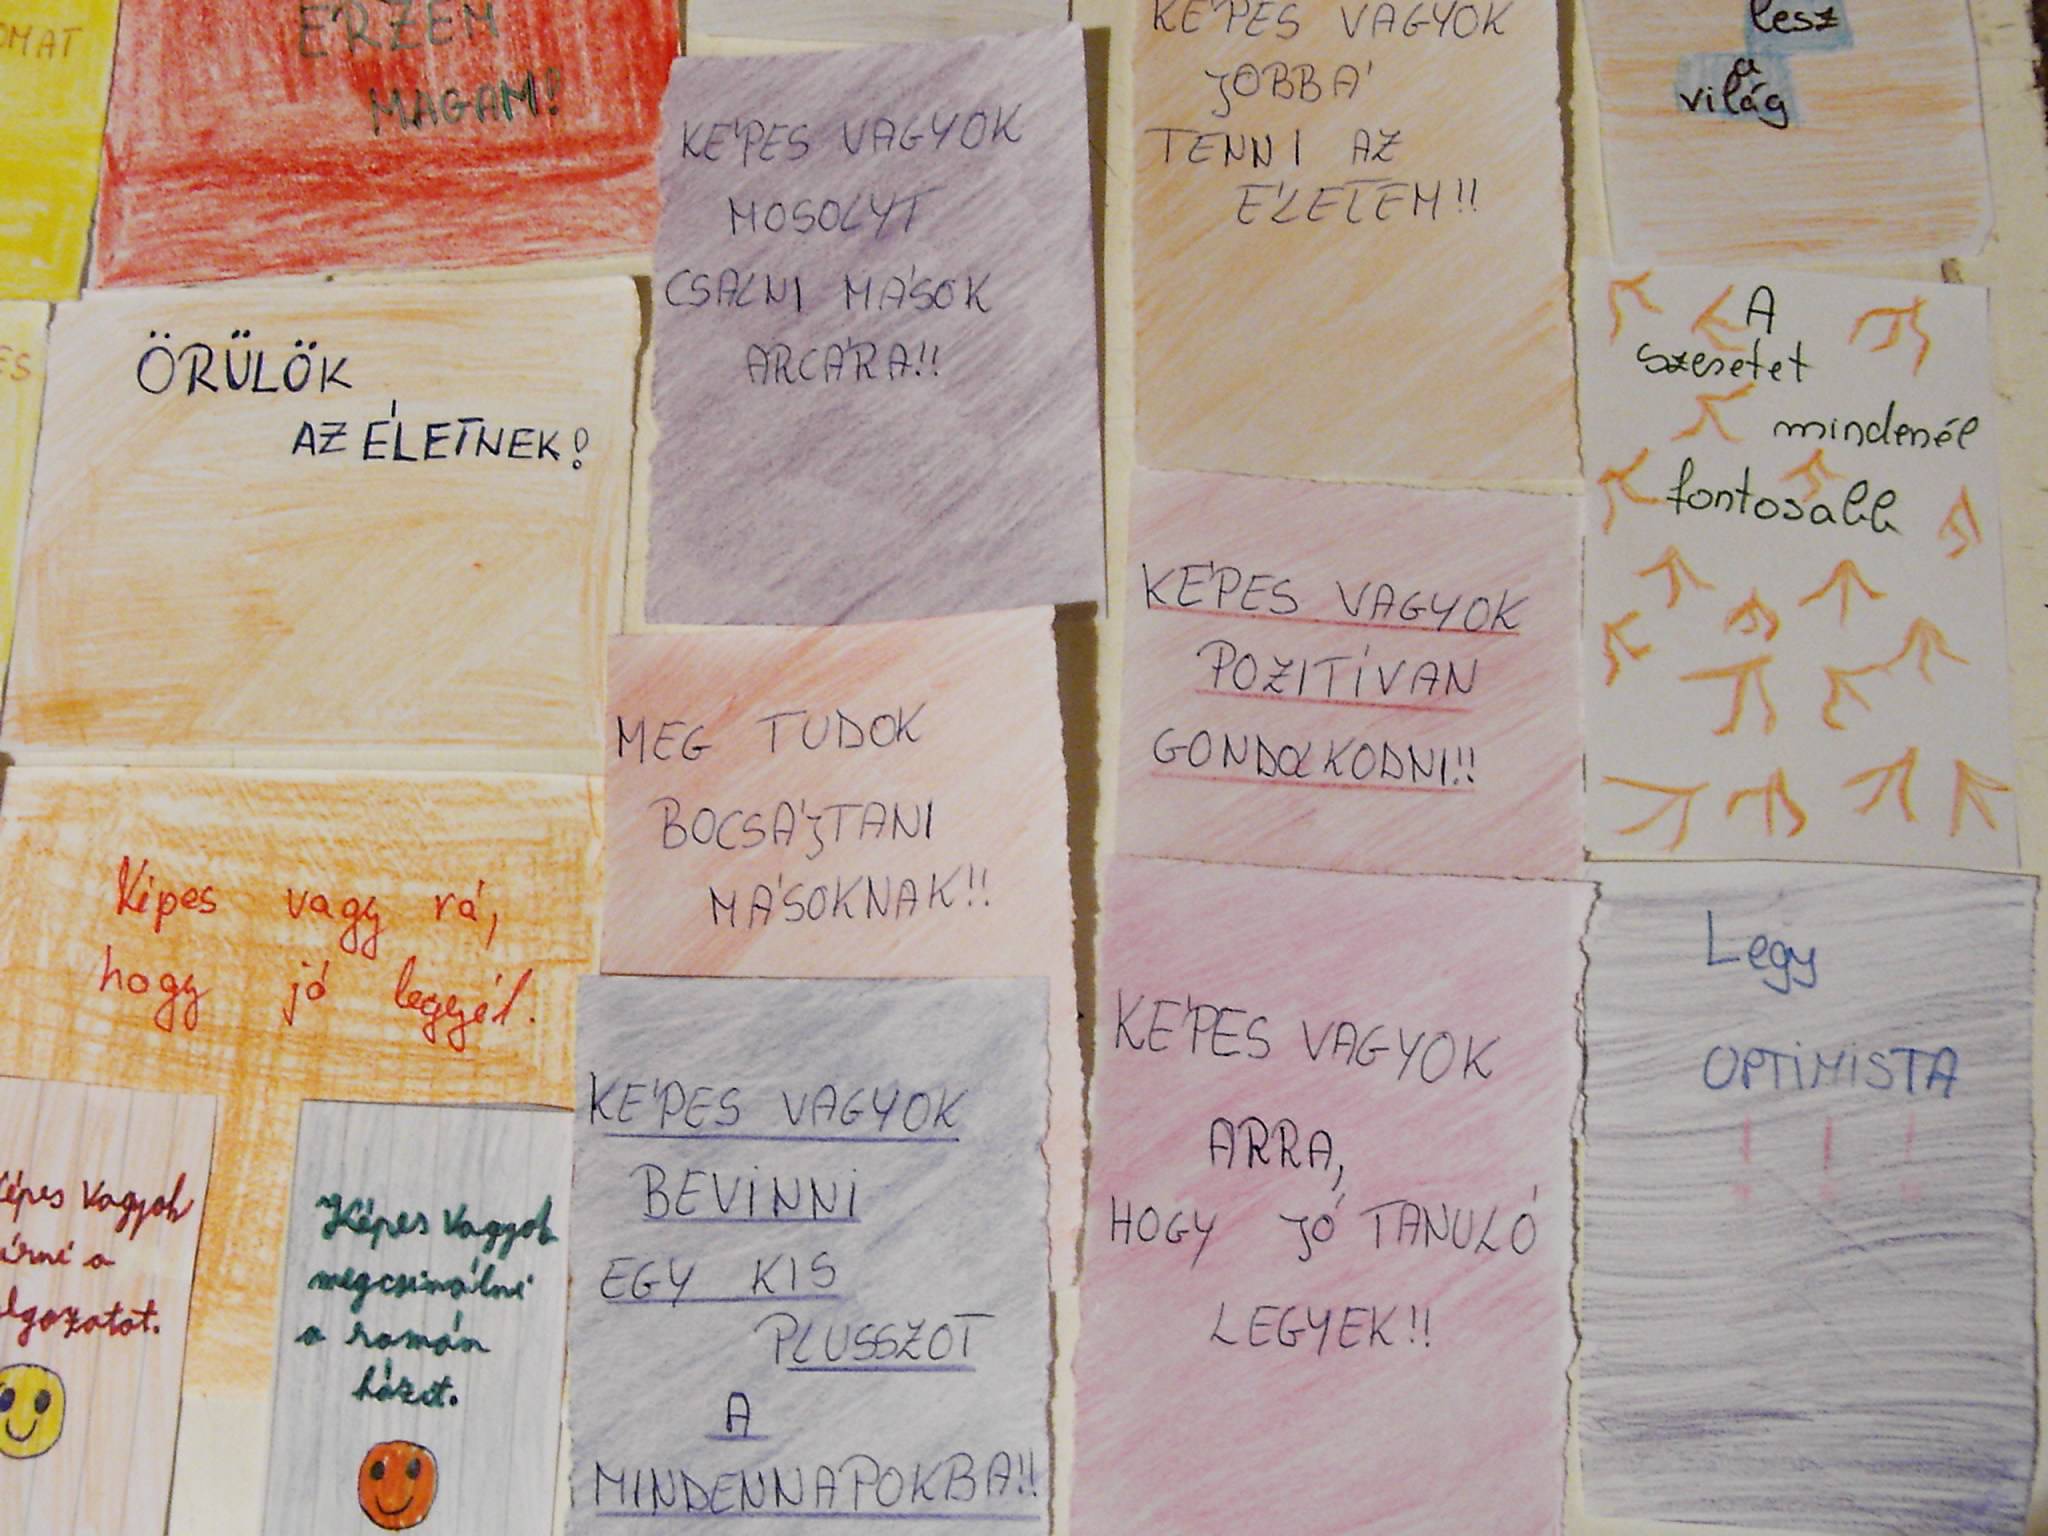 ÉRZEM
MAGAM!
KÉPES VAGYOK
MOSOLYT
CSALNI MÁSOK
ARCÁRA!!
KÉPES VAGYOK
JOBBÁ
TENNI AZ
ÉLETEM!!
lesz
a
világ
ÖRÜLÖK
AZ ÉLETNEK!
A
szeretet
mindenél
fontosabb
KÉPES VAGYOK
POZITÍVAN
GONDOLKODNI!!
MEG TUDOK
BOCSÁJTANI
MÁSOKNAK!!
Képes vagy rá,
hogy jó legyél.
Legy
OPTIMISTA
! ! !
KÉPES VAGYOK
ARRA,
HOGY JÓ TANULÓ
LEGYEK!!
KÉPES VAGYOK
BEVINNI
EGY KIS
PLUSSZOT
A
MINDENNAPOKBA!!
Képes Vagyok
megcsinálni
a román
házit.
Vagyok
a